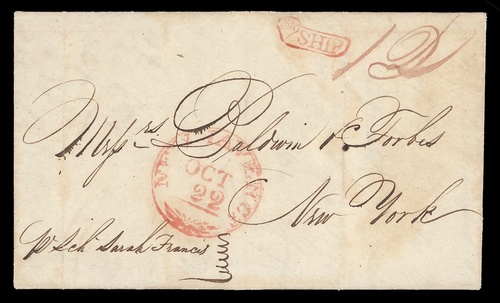 SHIP
12
Mess.rs Baldwin & Forbes
OCT
22
New York
p Sch Sarah Francis